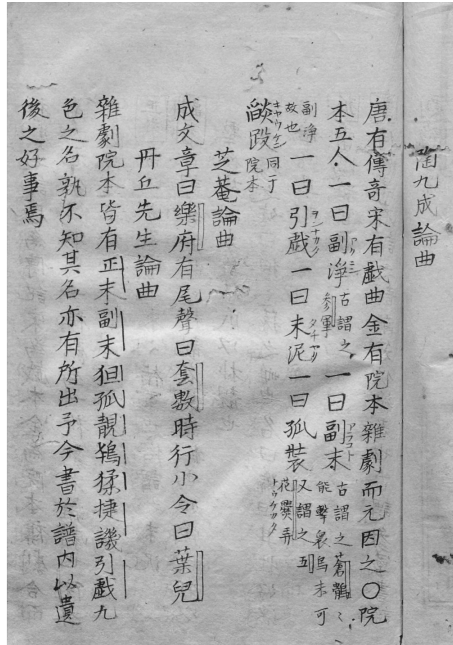 陶九成論曲
唐有傳奇宋有戯曲金有院本雜劇而元因之〇院
本五人一曰副淨古謂之參軍一曰副末古謂之蒼鶻〻能擊衆鳥末可
副淨故也一曰引戯一曰末泥一曰孤裝又謂之五花爨弄
燄段同于院本
芝菴論曲
成文章曰樂府有尾聲曰套數時行小令曰葉兒
丹丘先生論曲
雜劇院本皆有正末副末狚孤靚鴇猱捷譏引戯九
色之名孰不知其名亦有所出予今書於譜内以遺
後之好事焉